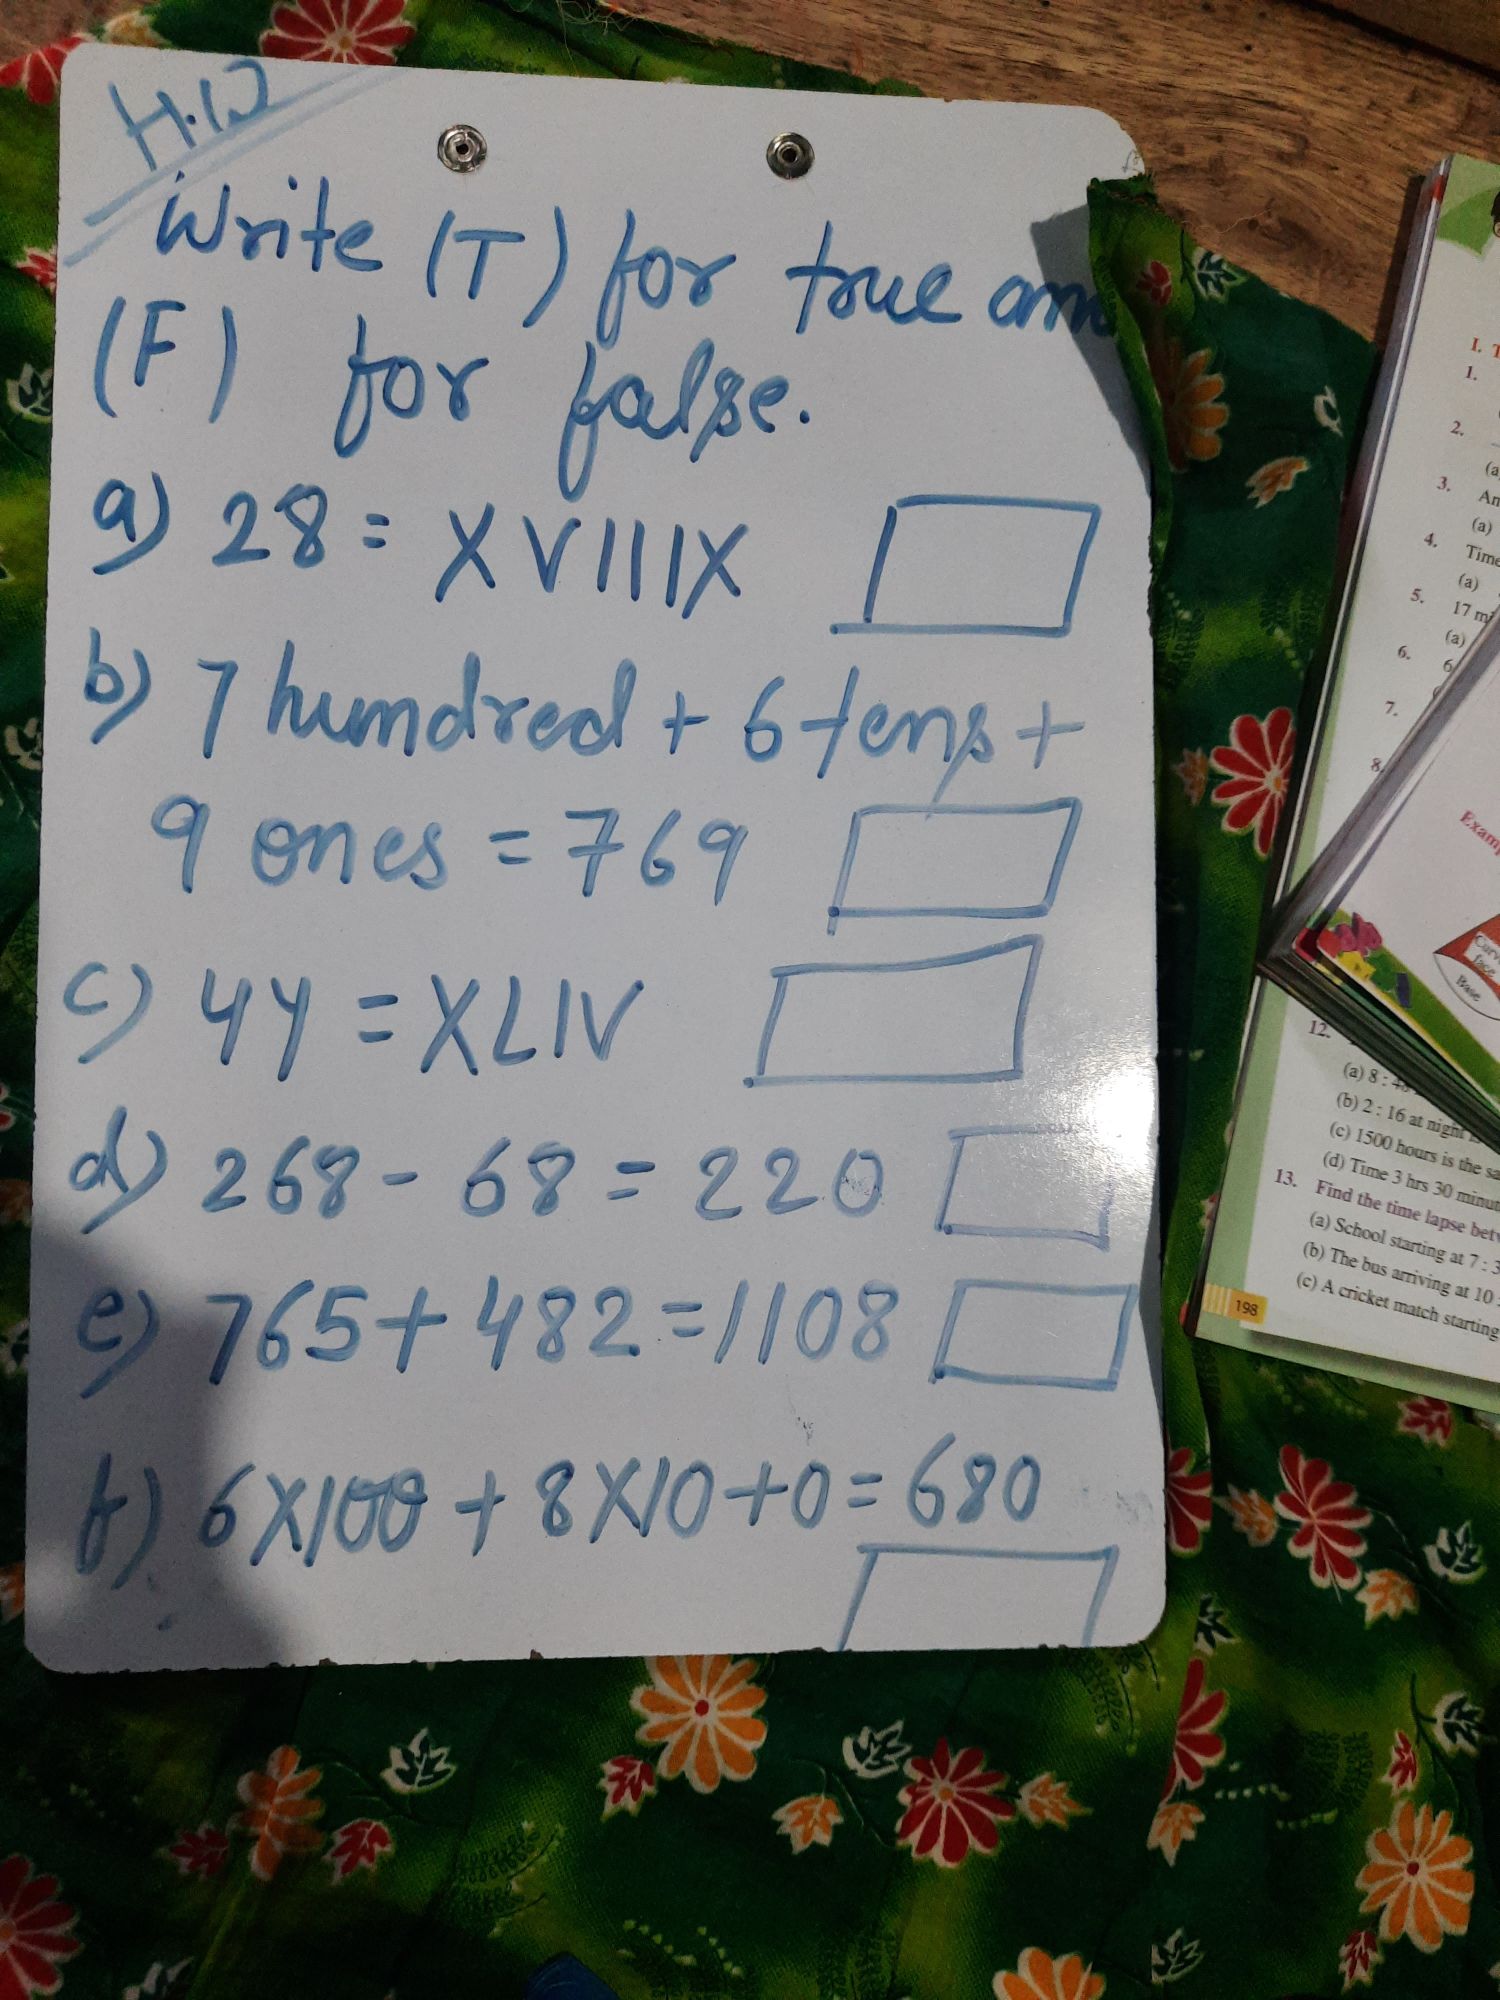 H.W
Write (T) for true an
(F) for false.
a) 28 = XVIIIX
b) 7 hundred + 6 tens +
9 ones = 769
c) 44 = XLIV
d) 268 - 68 = 220
e) 765 + 482 = 1108
f) 6X100 + 8X10 + 0 = 680
I. T
1.
2.
(a
3. An
(a)
4. Time
(a)
5. 17 mi
(a)
6. 6
7.
8.
Examp
Curv
face
Base
12.
(a) 8 : 48
(b) 2 : 16 at night
(c) 1500 hours is the sa
(d) Time 3 hrs 30 minut
13. Find the time lapse betw
(a) School starting at 7 : 3
(b) The bus arriving at 10
(c) A cricket match starting
198